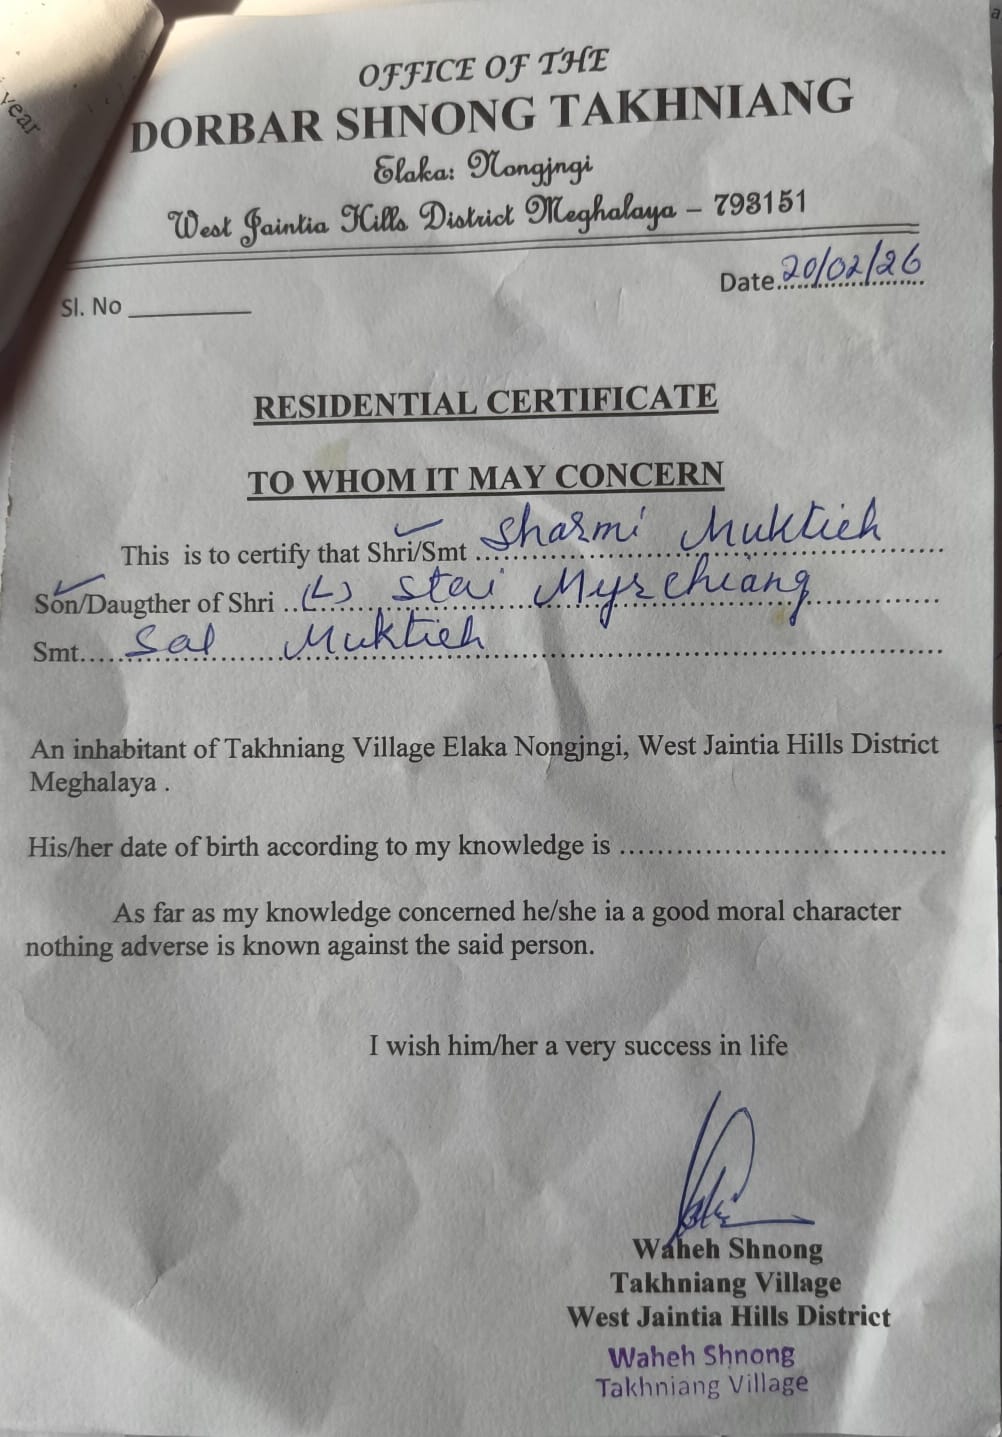 year
OFFICE OF THE
DORBAR SHNONG TAKHNIANG
Elaka: Nongjngi
West Jaintia Hills District Meghalaya – 793151
Sl. No ________ Date 20/02/26
RESIDENTIAL CERTIFICATE
TO WHOM IT MAY CONCERN
This is to certify that Shri/Smt Sharmi Muktieh
Son/Daugther of Shri (L) Stai Myrchiang
Smt..... Sal Muktieh
An inhabitant of Takhniang Village Elaka Nongjngi, West Jaintia Hills District
Meghalaya .
His/her date of birth according to my knowledge is ......................................
As far as my knowledge concerned he/she ia a good moral character
nothing adverse is known against the said person.
I wish him/her a very success in life
Waheh Shnong
Takhniang Village
West Jaintia Hills District
Waheh Shnong
Takhniang Village